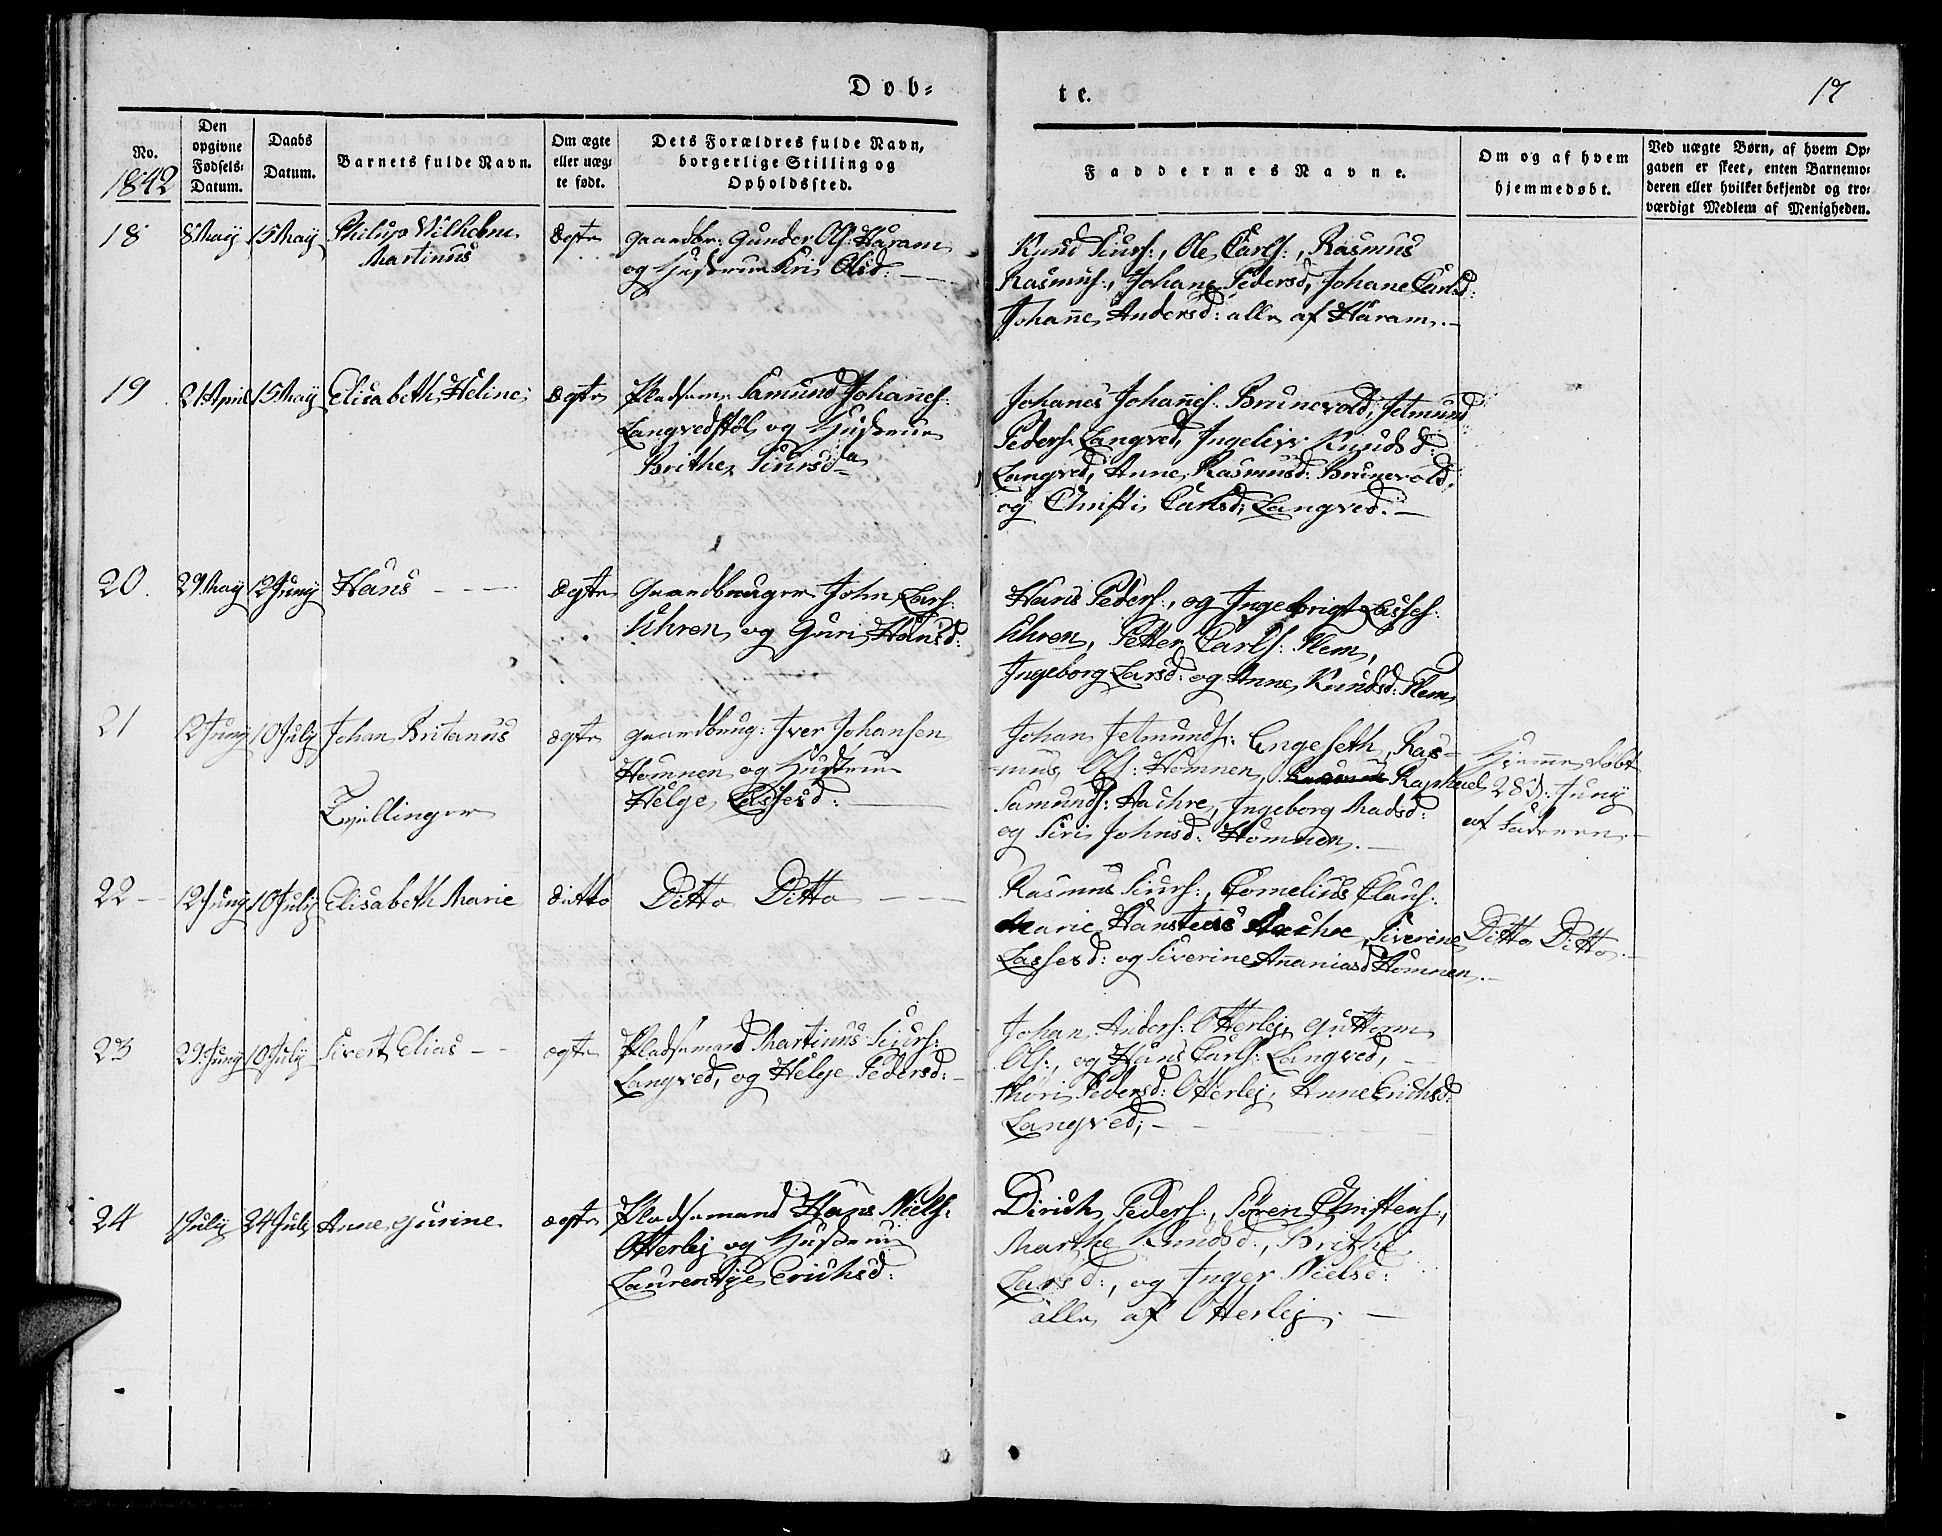 Døb-
te.
17
No.
1842
Den
opgivne
Fødsels-
Datum.
Daabs
Datum.
Barnets fulde Navn.
Om ægte
eller uæg-
te født.
Dets Forældres fulde Navn,
borgerlige Stilling og
Opholdssted.
Faddernes Navne.
Om og af hvem
hjemmedøbt.
Ved uægte Børn, af hvem Op-
gaven er skeet, enten Barnemo-
deren eller hvilket bekjendt og tro-
værdigt Medlem af Menigheden.
18
8 May
15 May
Philip Wilhelm
Martinus
Ægte
Gaardbr: Gunder Ols: Haram
og Hustrue Kri Olsd:
Knud Siurs:, Ole Carls:, Rasmus
Rasmus:, Johane Pedersd, Johane Carlsd:
Johane Andersd: alle af Haram.
19
21 April
15 May
Elisabeth Heline
Ægte
Pladsm: Samund Johanes:
Langvedstøl og Hustrue
Brithe Siursda
Johanes Johanes: Brunevold, Jetmund
Peders: Langved, Ingelew Knudsd:
Langved, Anne Rasmusd: Brunevold,
og Christi Carlsd, Langved.
20.
29 May
12 Juny
Hans
Ægte
Gaardbruger John Lars:
Uhren og Guri Hansd:
Hans Peders:, og Ingebrigt Lasses:
Uhren, Petter Carls: Flem,
Ingeborg Larsd: og Anne Knudsd: Flem
21
12 Juny
10 July
Johan Britanus
Tvillinger
ægte
gaardbrug: Iver Johansen
Homnen og Hustrue
Helge Lassesd:
Johan Jetmunds: Engeseth, Ras-
mus Ols: Homnen, Raphael
Samunds: Aachre, Ingeborg Madsd:
og Siri Johnsd: Homnen.
Hjemmedøbt
28d: Juny
af Faderen.
22
12 Juny
10 July
Elisabeth Marie
ditto
Ditto Ditto
Rasmus Siurs:, Cornelius Claus:
Marie Hansteds Aachre, Siverine
Lassesd: og Siverine Ananiasd Homnen.
Ditto Ditto.
23
29 Juny
10 July
Sivert Elias
ægte
Pladsemand Martinus Siurs:
Langved, og Helge Pedersd:
Johan Anders: Otterlej, Guttorm
Ols:, og Hans Carls: Langved,
Thori Pedersd: Otterlej, Anne Erichsd:
Langved;
24
1 July
24 July
Anne Gurine
ægte
Pladsemand Hans Niels:
Otterlej og Hustrue
Laurentze Erichsd:
Dirich Peders:, Søren Christens:,
Marthe Knudsd:, Brithe
Larsd:, og Inger Nielsd:
alle af Otterlej.